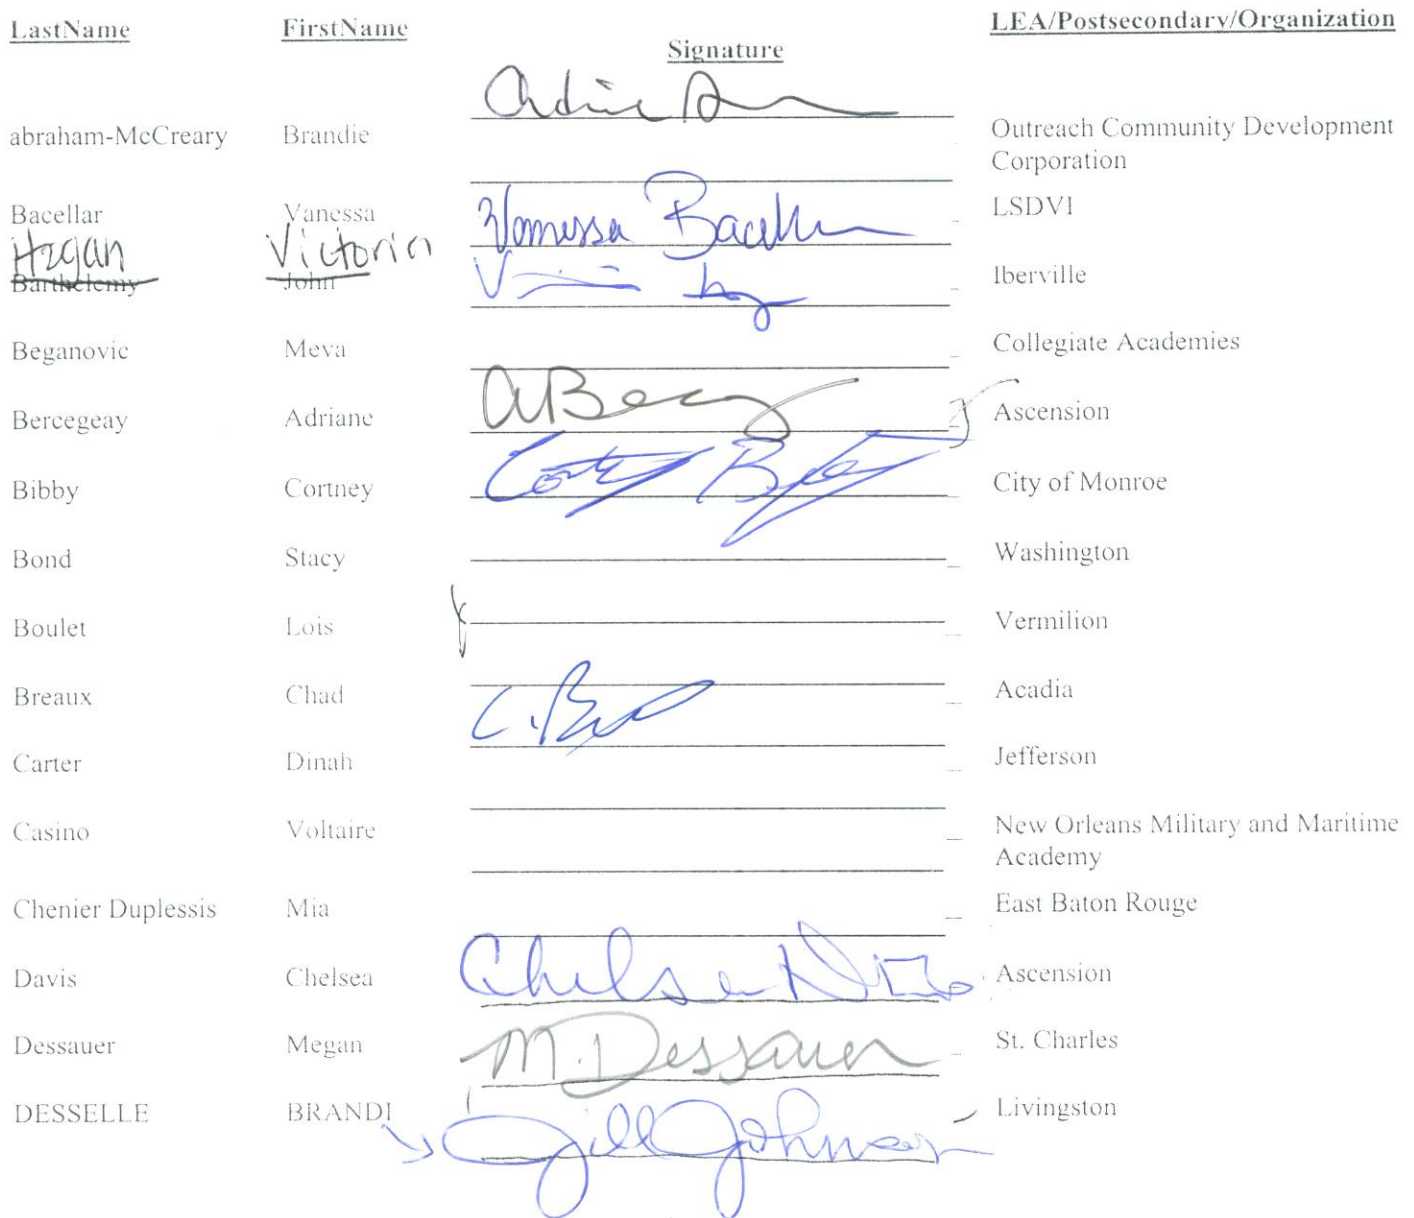 LastName FirstName Signature LEA/Postsecondary/Organization
abraham-McCreary Brandie Outreach Community Development
Corporation
Bacellar Vanessa Vanessa Bacellar LSDVI
Hagan Victoria
Barthelemy John Iberville
Beganovic Meva Collegiate Academies
Bercegeay Adriane Ascension
Bibby Cortney Cortney Bibby City of Monroe
Bond Stacy Washington
Boulet Lois Vermilion
Breaux Chad Acadia
Carter Dinah Jefferson
Casino Voltaire New Orleans Military and Maritime
Academy
Chenier Duplessis Mia East Baton Rouge
Davis Chelsea Chelsea Ascension
Dessauer Megan M. Dessauer St. Charles
DESSELLE BRANDI Jill Johnson Livingston